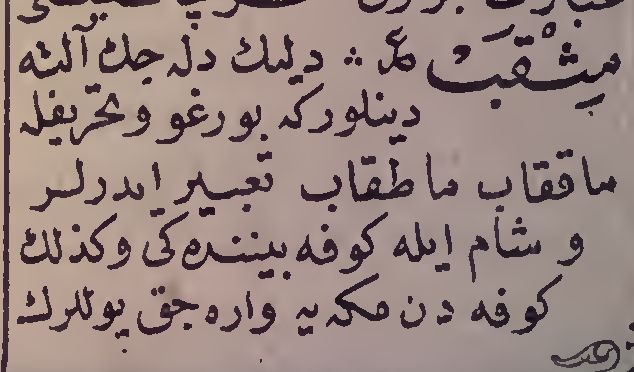 مِثْقَبْ مد ⁂ دیلیك دله جك آلته
دینلور كه بورغو و تحریفله
ماققاب ماطقاب تعبیر ایدرلر
و شام ایله كوفه بیننده كی وكذلك
كوفه دن مكه یه واره جق یوللرك